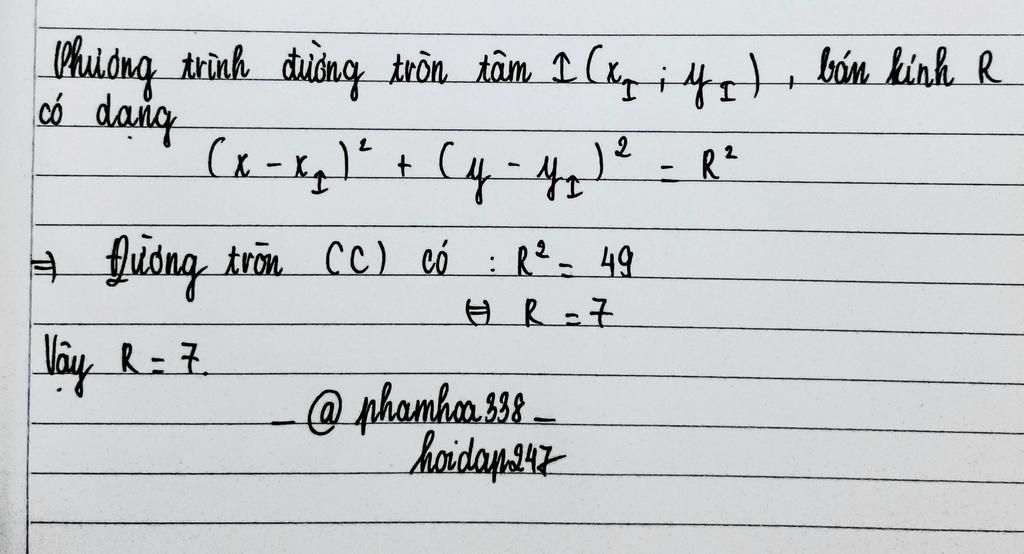 Phương trình đường tròn tâm I (x_I ; y_I) , bán kính R
có dạng
(x - x_I)² + (y - y_I)² = R²
⇒ Đường tròn (C) có : R² = 49
⇔ R = 7
Vậy R = 7.
- @ phamhoa338 -
hoidap247